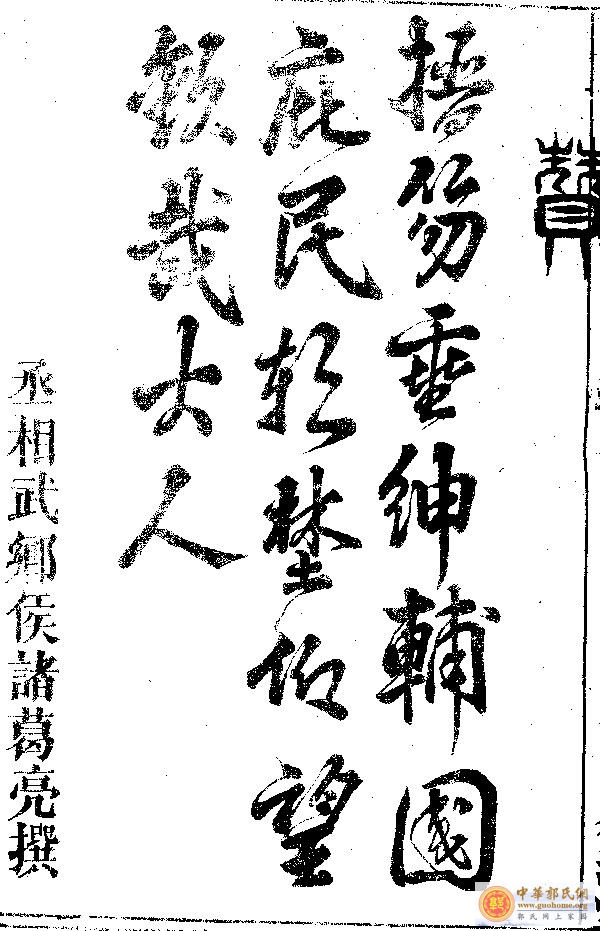 贊
搢笏垂紳輔國
庇民朝埜仰望
哉大人
丞相武鄉侯諸葛亮撰
中華郭氏網
www.guohome.org